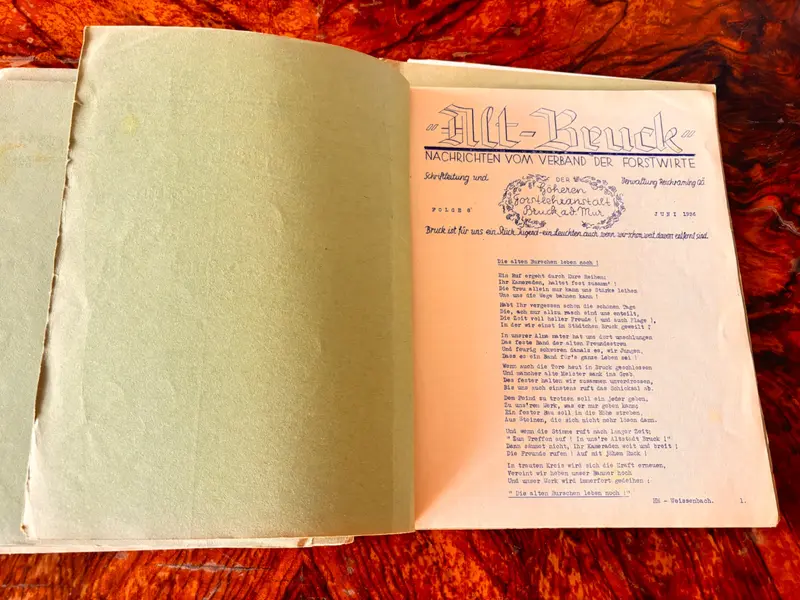 "Alt-Bruck"
NACHRICHTEN VOM VERBAND DER FORSTWIRTE
Schriftleitung und
DER
Verwaltung Reichraming OÖ.
Höheren
Forstlehranstalt
Bruck a.d. Mur
FOLGE 6
JUNI 1956
Bruck ist für uns ein Stück Jugend - ein Leuchten auch wenn wir schon weit davon entfernt sind.
Die alten Burschen leben noch !
Ein Ruf ergeht durch Eure Reihen:
Ihr Kameraden, haltet fest zusamm' !
Die Treu allein nur kann uns Stärke leihen
Uns uns die Wege bahnen kann !
Habt Ihr vergessen schon die schönen Tage
Die, ach nur allzu rasch sind uns enteilt,
Die Zeit voll heller Freude ( und auch Plage ),
In der wir einst im Städtchen Bruck geweilt !
In unsrer Alma mater hat uns dort umschlungen
Das feste Band der alten Freundestreu
Und feurig schworen damals es, wir Jungen,
Dass es ein Band für's ganze Leben sei !
Wenn auch die Tore heut in Bruck geschlossen
Und mancher alte Meister sank ins Grab.
Des fester halten wir zusammen unverdrossen,
Bis uns auch einstens ruft das Schicksal ab.
Dem Feind zu trotzen soll ein jeder geben,
Zu uns'rem Werk, was er nur geben kann;
Ein fester Bau soll in die Höhe streben,
Aus Steinen, die sich nicht mehr lösen dann.
Und wenn die Stimme ruft nach langer Zeit;
" Zum Treffen auf ! In uns're Altstadt Bruck !"
Dann säumet nicht, Ihr Kameraden weit und breit !
Die Freunde rufen ! Auf mit jähem Ruck !
In trautem Kreis wird sich die Kraft erneuen,
Vereint wir heben unser Banner hoch
Und unser Werk wird immerfort gedeihen :
" Die alten Burschen leben noch !"
- Weissenbach.
1.